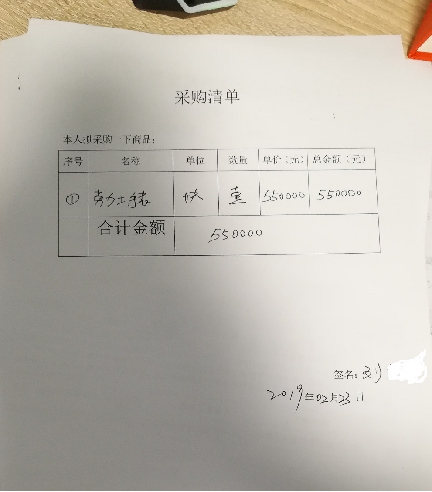 采购清单
本人拟采购一下商品：
序号 名称 单位 数量 单价（元） 总金额（元）
① 劳力士手表 块 壹 550000 550000
合计金额 550000
签名：刘
2019年02月23日